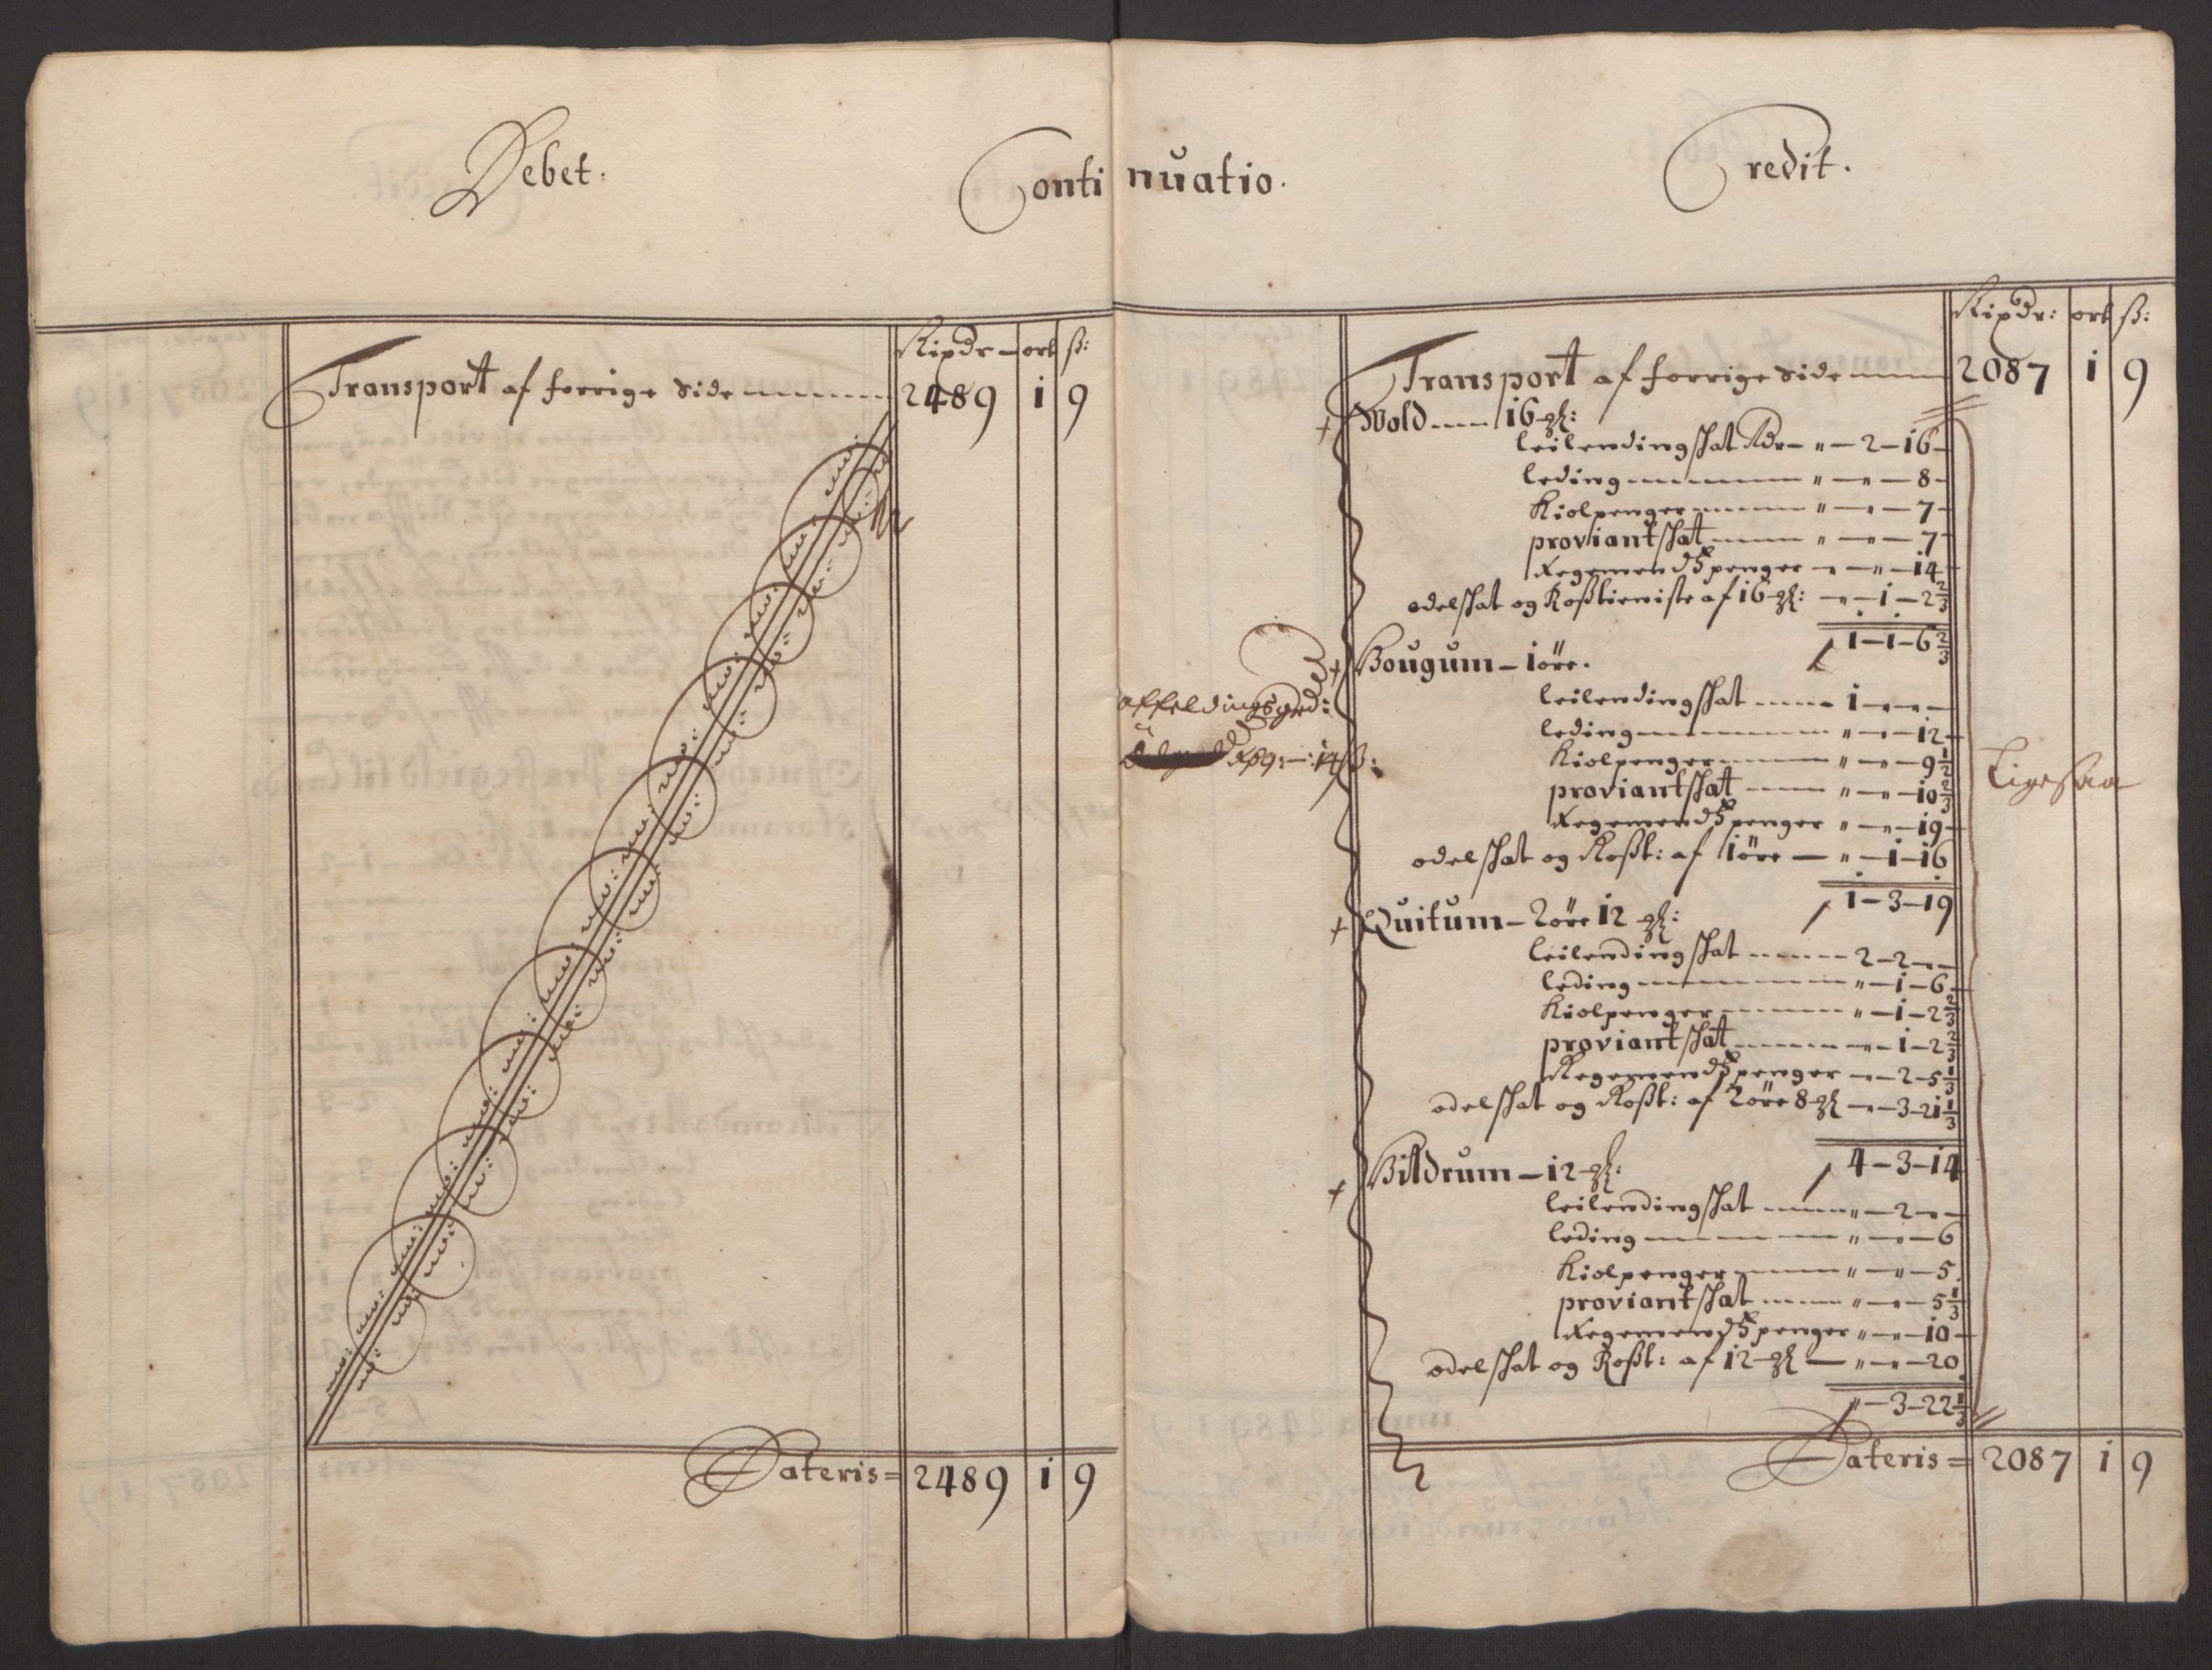 Debet.
Continuatio.
Credit.
Rixdr ort ß:
Transport af forrige Side 2489 1 9
Lateris = 2489 1 9
Rixdr: ort ß:
Transport af forrige Side 2087 1 9
Wold 16 :
leilendingskat Rdr – " – 2 – 16
leding " – " – 8
Kiolpenger " – " – 7
proviantskat " – " – 7
Regemendspenger " – " – 14
odelskat og Roßtieniste af 16 : – " – 1 – 2 2/3
1 – 1 – 6 2/3
Bougum – 1 öre.
leilendingskat 1 – " – "
leding " – " – 12
Kiolpenger " – " – 9 1/2
proviantskat " – " – 10 2/3
Regemendspenger " – " – 19
odelskat og Roßt: af 1 öre – " – 1 – 16
1 – 3 – 19
Quitum – 2 öre 12 :
leilendingskat 2 – 2 – "
leding " – 1 – 6
Kiolpenger " – 1 – 2 2/3
proviantskat " – 1 – 2 2/3
Regemendspenger – " – 2 – 5 1/3
odelskat og Roßt: af 2 öre 8 – " – 3 – 21 1/3
4 – 3 – 14
Bildrum – 12 :
leilendingskat " – 2 – "
leding " – " – 6
Kiolpenger " – " – 5
proviantskat " – " – 5 1/3
Regemendspenger " – " – 10
odelskat og Roßt: af 12 – " – " – 20
" – 3 – 22 1/3
Ligesaa
Lateris = 2087 1 9